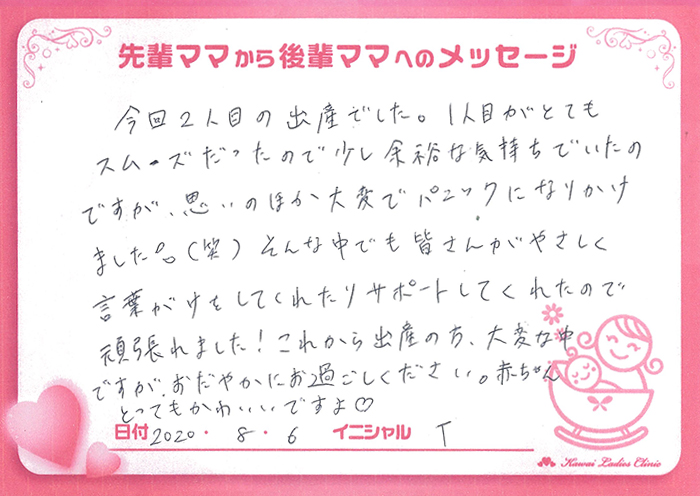 先輩ママから後輩ママへのメッセージ
今回2人目の出産でした。1人目がとても
スムーズだったので少し余裕な気持ちでいたの
ですが、思いのほか大変でパニックになりかけ
ました。(笑)そんな中でも皆さんがやさしく
言葉がけをしてくれたりサポートしてくれたので
頑張れました!これから出産の方、大変な中
ですが、おだやかにお過ごしください。赤ちゃん
とってもかわいいですよ♡
日付 2020・8・6 イニシャル T
Kawai Ladies Clinic